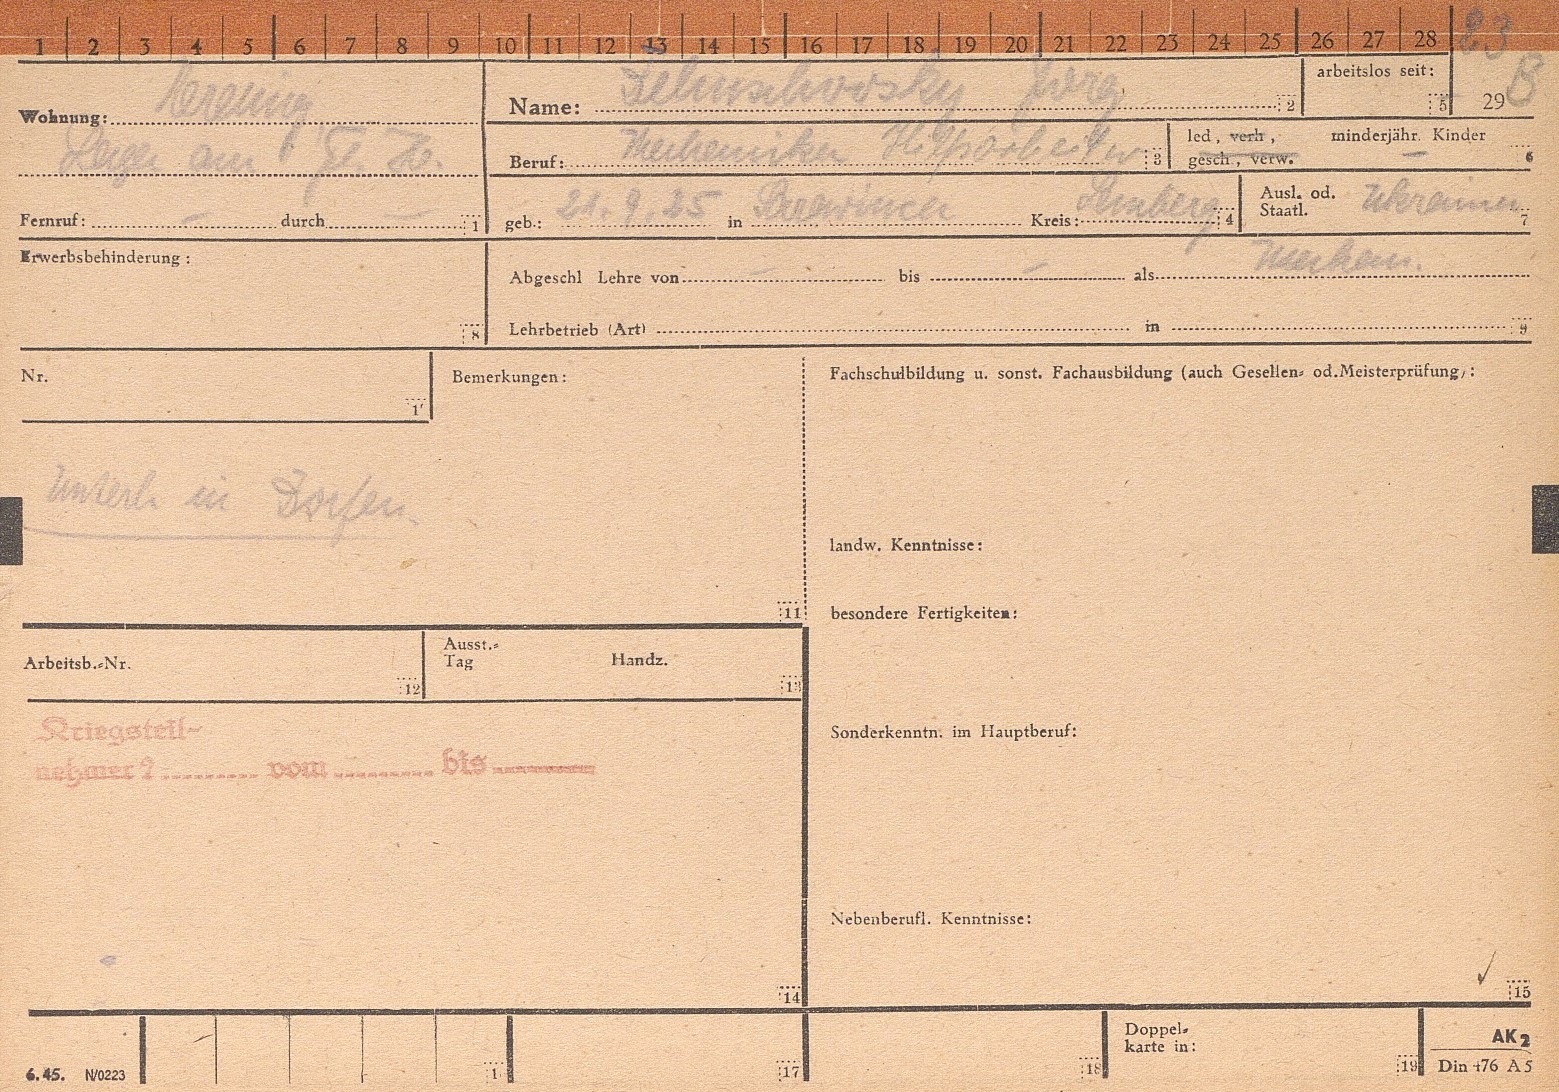 1 2 3 4 5 6 7 8 9 10 11 12 13 14 15 16 17 18 19 20 21 22 23 24 25 26 27 28 23
arbeitslos seit: 5 29 B
Wohnung:
Name: Jörg 2
Lager am
Beruf: Mechaniker Hilfsarbeiter 3
led, verh, minderjähr. Kinder –
gesch, verw. 6
Fernruf: – durch – 1
geb.: 21.9.25 in Kreis: Lemberg 4
Ausl. od. Staatl. Ukrainer 7
Erwerbsbehinderung: 8
Abgeschl Lehre von – bis – als Mechan.
Lehrbetrieb (Art) in 9
Nr. 1
Bemerkungen:
Fachschulbildung u. sonst. Fachausbildung (auch Gesellen= od. Meisterprüfung):
Unterh in Dorfen
landw. Kenntnisse:
besondere Fertigkeiten:
11
Arbeitsb.=Nr. 12
Ausst.=
Tag Handz. 13
Kriegsteil-
nehmer? vom bis
Sonderkenntn. im Hauptberuf:
Nebenberufl. Kenntnisse:
14
✓ 15
6.45. N/0223 1 17
Doppel=
karte in: 18 19
AK2
Din 476 A5